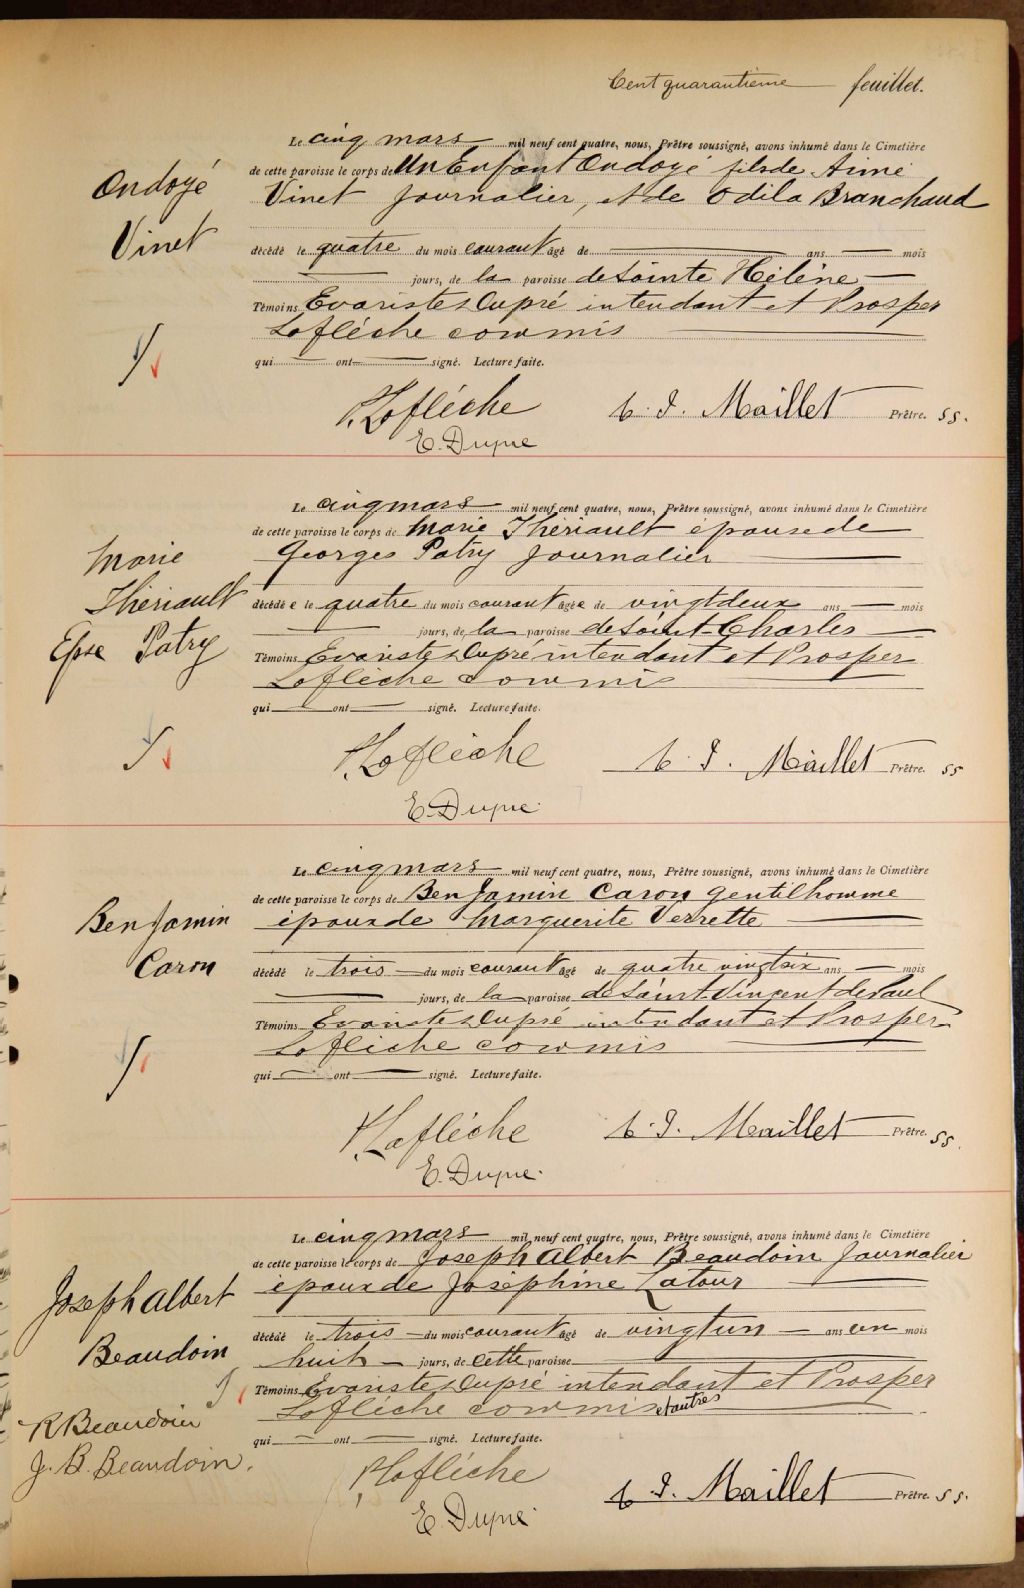 Cent quarantième feuillet.
Le cinq mars mil neuf cent quatre, nous, Prêtre soussigné, avons inhumé dans le Cimetière
Ondoyé
de cette paroisse le corps de Un Enfant Ondoyé fils de Aimé
Vinet journalier, et de Odila Branchaud
Vinet
décédé le quatre du mois courant âgé de ans mois
jours, de la paroisse de Sainte Hélène
Témoins Evariste Dupré intendant et Prosper
Laflèche commis
qui ont signé. Lecture faite.
P. Laflèche
Maillet Prêtre. SS.
E. Dupré
Le cinq mars mil neuf cent quatre, nous, Prêtre soussigné, avons inhumé dans le Cimetière
de cette paroisse le corps de Marie Thériault épouse de
Marie
Georges Patry journalier
Thériault
décédée le quatre du mois courant âgée de vingt deux ans mois
Epse Patry
jours, de la paroisse de Saint-Charles
Témoins Evariste Dupré intendant et Prosper
Laflèche commis
qui ont signé. Lecture faite.
P. Laflèche
Maillet Prêtre. SS
E. Dupré
Le cinq mars mil neuf cent quatre, nous, Prêtre soussigné, avons inhumé dans le Cimetière
de cette paroisse le corps de Benjamin Caron gentilhomme
Benjamin
époux de Marguerite Verrette
Caron
décédé le trois du mois courant âgé de quatre vingt six ans mois
jours, de la paroisse de Saint-Vincent de Paul
Témoins Evariste Dupré intendant et Prosper
Laflèche commis
qui ont signé. Lecture faite.
P. Laflèche
Maillet Prêtre. SS.
E. Dupré
Le cinq mars mil neuf cent quatre, nous, Prêtre soussigné, avons inhumé dans le Cimetière
de cette paroisse le corps de Joseph Albert Beaudoin journalier
Joseph Albert
époux de Joséphine Latour
Beaudoin
décédé le trois du mois courant âgé de vingt un ans un mois
huit jours, de cette paroisse
Témoins Evariste Dupré intendant et Prosper
Laflèche commis et autres
R Beaudoin
qui ont signé. Lecture faite.
J. B. Beaudoin.
P. Laflèche
Maillet Prêtre. SS.
E. Dupré